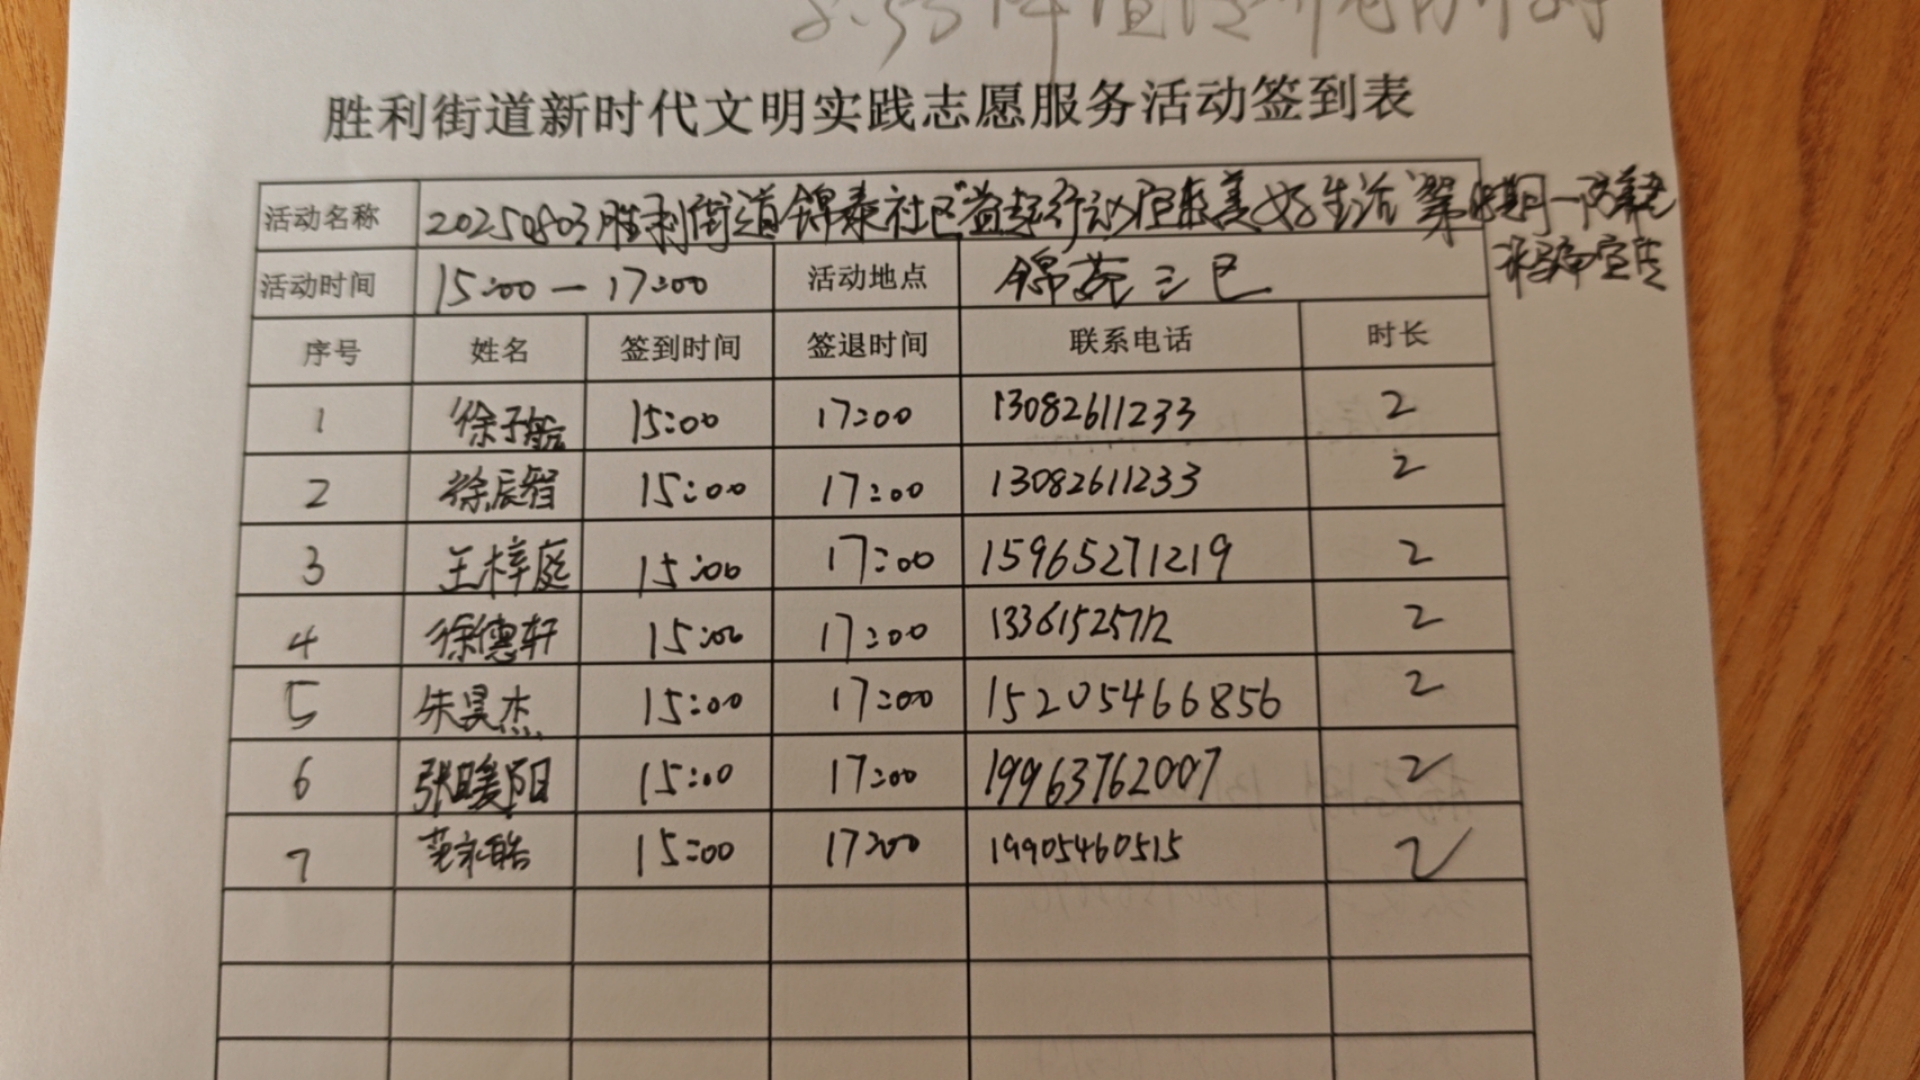 胜利街道新时代文明实践志愿服务活动签到表
活动名称 20250803胜利街道锦泰社区"益起行动 美好生活"第
活动时间 15:00-17:00 活动地点 锦苑三区
序号 姓名 签到时间 签退时间 联系电话 时长
1 徐子航 15:00 17:00 13082611233 2
2 徐辰智 15:00 17:00 13082611233 2
3 王梓庭 15:00 17:00 15965271219 2
4 徐德轩 15:00 17:00 13361525712 2
5 朱昊杰 15:00 17:00 15205466856 2
6 张暖阳 15:00 17:00 19963762007 2
7 范永皓 15:00 17:00 19905460515 2